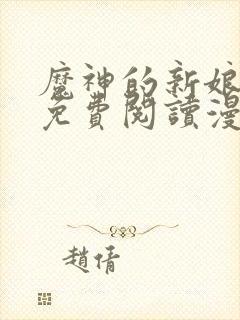 魔神的新娘
免費閱讀漫
趙倩